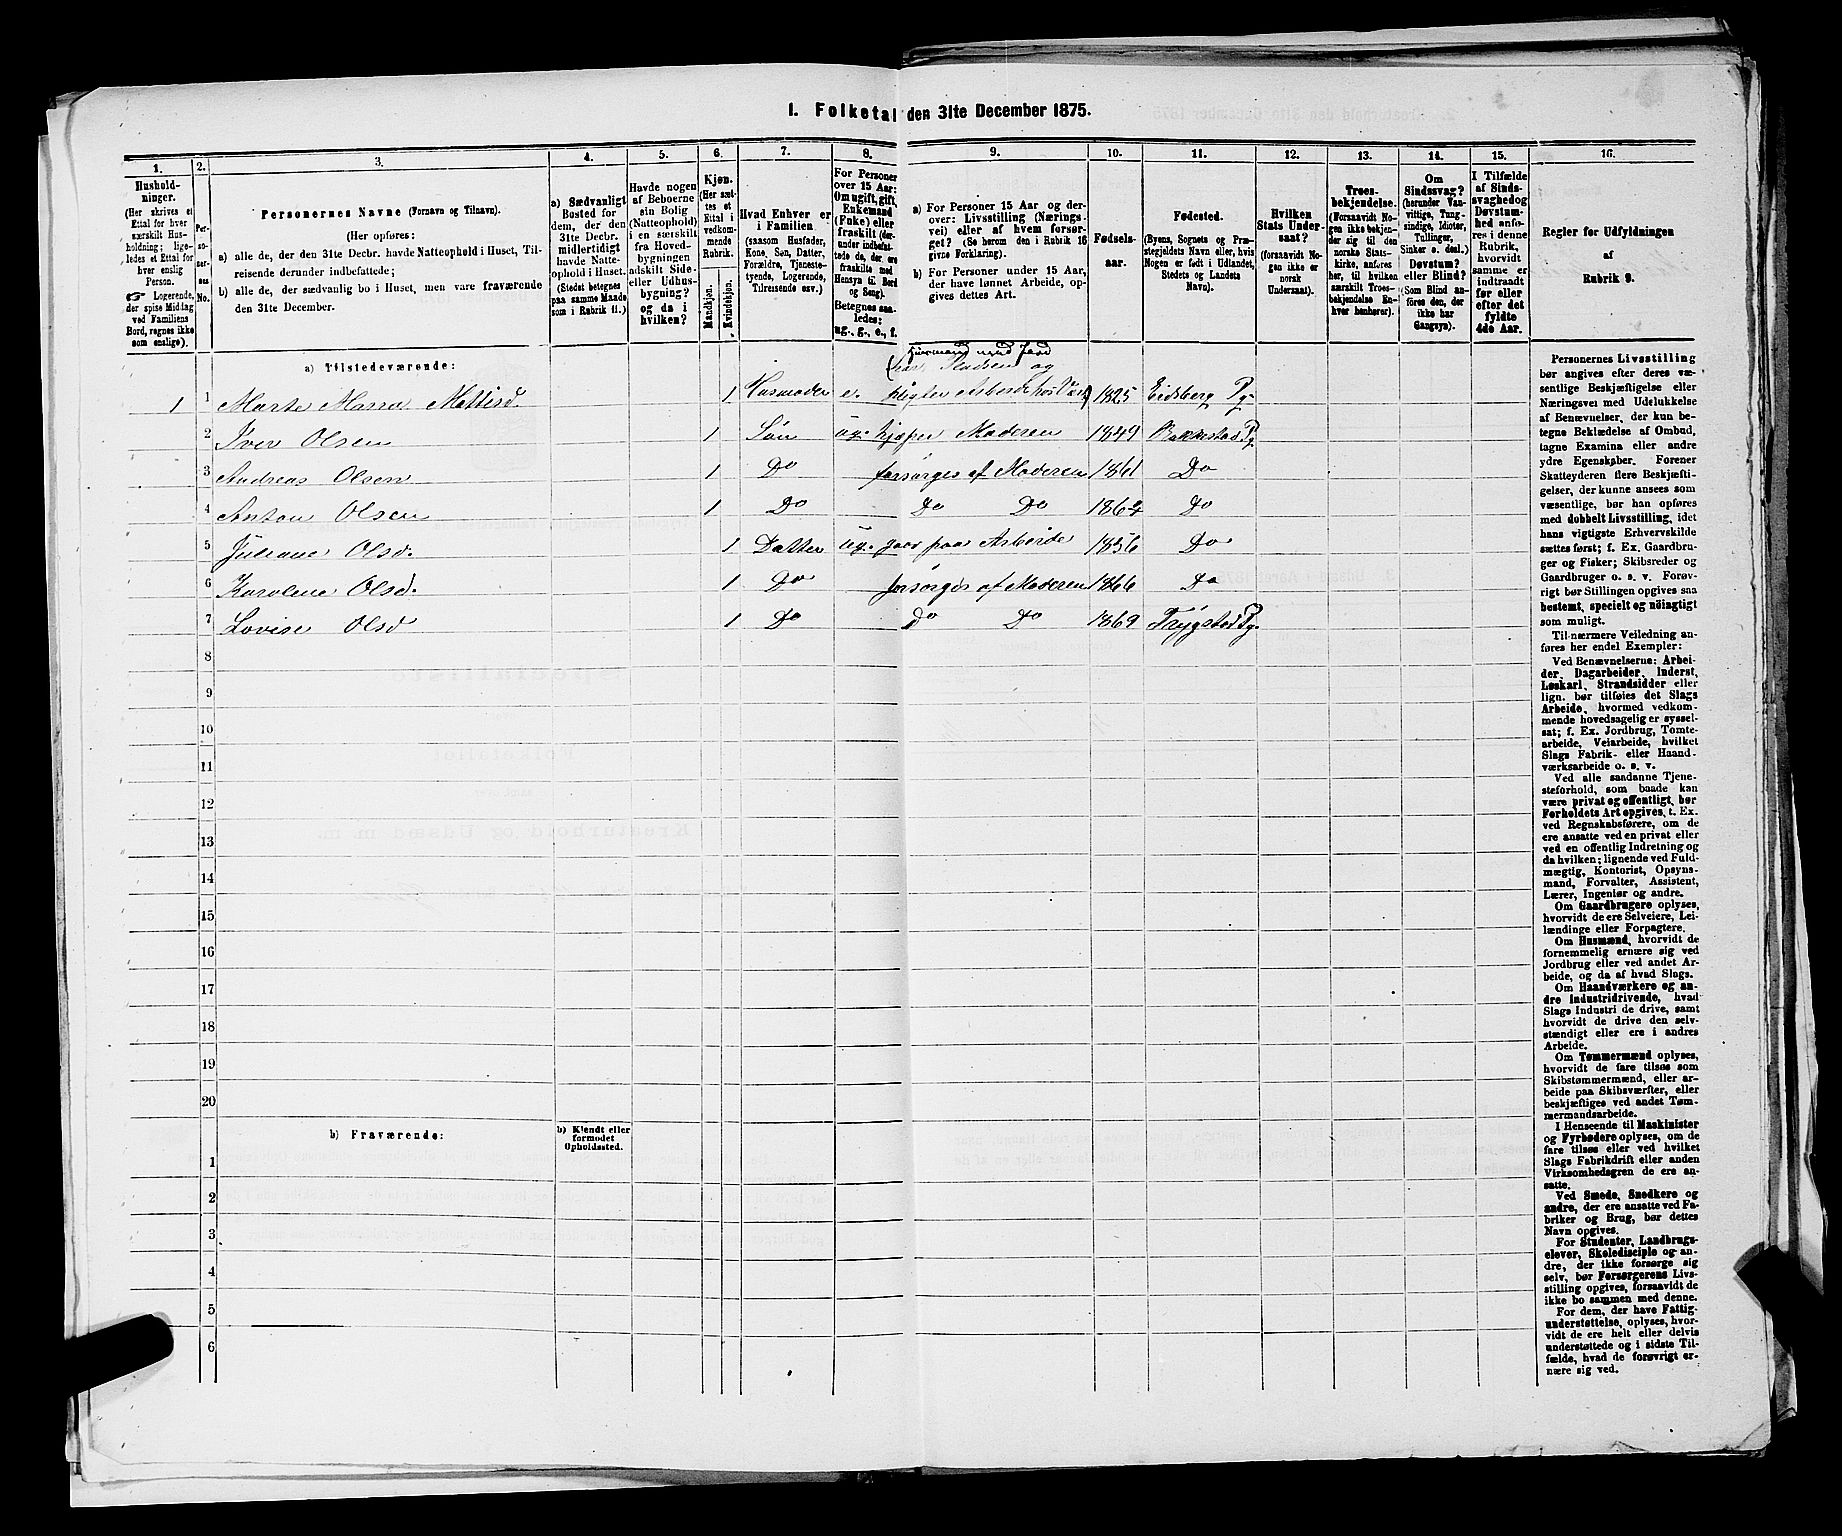 1. Folketal den 31te December 1875.
1.
2.
3.
4.
5.
6.
7.
8.
9.
10.
11.
12.
13.
14.
15.
16.
Hushold-
ninger.
(Her skrives et
Ettal for hver
særskilt Hus-
holdning; lige-
ledes et Ettal for
hver enslig
Person.
☞ Logerende,
der spise Middag
ved Familiens
Bord, regnes ikke
som enslige).
Per-
so-
ner-
nes
No.
Personernes Navne (Fornavn og Tilnavn).
(Her opføres:
a) alle de, der den 31te Decbr. havde Natteophold i Huset, Til-
reisende derunder indbefattede;
b) alle de, der sædvanlig bo i Huset, men vare fraværende
den 31te December.
a) Sædvanligt
Bosted for
dem, der den
31te Decbr.
midlertidigt
havde Natte-
ophold i Huset.
(Stedet betegnes
paa samme Maade
som i Rubrik 11.)
Havde nogen
af Beboerne
sin Bolig
(Natteophold)
i en særskilt
fra Hoved-
bygningen
adskilt Side-
eller Udhus-
bygning?
og da i
hvilken?
Kjøn.
(Her sæt-
tes et
Ettal i
vedkom-
mende
Rubrik.
Mandkjøn.
Kvindekjøn.
Hvad Enhver er
i Familien
(saasom Husfader,
Kone, Søn, Datter,
Forældre, Tjeneste-
tyende, Logerende,
Tilreisende osv.)
For Personer
over 15 Aar:
Om ugift, gift,
Enkemand
(Enke) eller
fraskilt (der-
under indbefat-
tede de, der ere
fraskilte med
Hensyn til Bord
og Seng).
Betegnes saa-
ledes:
ug., g., e., f.
a) For Personer over 15 Aar og der-
over: Livsstilling (Nærings-
vei) eller af hvem forsør-
get? (Se herom den i Rubrik 16
givne Forklaring).
b) For Personer under 15 Aar,
der have lønnet Arbeide, op-
gives dettes Art.
Fødsels-
aar.
Fødested.
(Byens, Sognets og Præ-
stegjeldets Navn eller, hvis
Nogen er født i Udlandet,
Stedets og Landets
Navn).
Hvilken
Stats Under-
saat?
(forsaavidt No-
gen ikke er
norsk
Undersaat).
Troes-
bekjendelse.
(Forsaavidt No-
gen ikke bekjen-
der sig til den
norske Stats-
kirke, anføres
her, til hvilken
særskilt Troes-
bekjendelse En-
hver henhører).
Om
Sindssvag?
(herunder Van-
vittige, Tung-
sindige, Idioter,
Tullinger,
Sinker o. desl.)
Døvstum?
eller Blind?
(Som Blind an-
føres den, der
ikke har
Gangsyn).
I Tilfælde
af Sinds-
svaghed og
Døvstum-
hed anfø-
res i denne
Rubrik,
hvorvidt
samme er
indtraadt
før eller
efter det
fyldte
4de Aar.
Regler for Udfyldningen
af
Rubrik 9.
a) Tilstedeværende:
Husmand med Jord
og
1 1 Marte Maria Mattisd 1 Husmoder e. 1825 Eidsberg Pg.
2 Iver Olsen 1 Søn ug. hjelper Moderen 1849 Pg.
3 Andreas Olsen 1 Do forsørges af Moderen 1861 Do
4 Anton Olsen 1 Do Do Do 1864 Do
5 Juliane Olsd. 1 Datter ug. gaar paa Arbeide 1856 Do
6 Karolene Olsd. 1 Do forsørges af Moderen 1866 Do
7 Lovise Olsd 1 Do Do Do 1869 Trygstad Pg.
8
9
10
11
12
13
14
15
16
17
18
19
20
b) Fraværende:
b) Kjendt eller
formodet
Opholdssted.
1
2
3
4
5
6
Personernes Livsstilling
bør angives efter deres væ-
sentlige Beskjæftigelse eller
Næringsvei med Udelukkelse
af Benævnelser, der kun be-
tegne Beklædelse af Ombud,
tagne Examina eller andre
ydre Egenskaber. Forener
Skatteyderen flere Beskjæfti-
gelser, der kunne ansees som
væsentlige, bør han opføres
med dobbelt Livsstilling, idet
hans vigtigste Erhvervskilde
sættes først; f. Ex. Gaardbru-
ger og Fisker; Skibsreder og
Gaardbruger o. s. v. Forøv-
rigt bør Stillingen opgives saa
bestemt, specielt og nøiagtigt
som muligt.
Til nærmere Veiledning an-
føres her endel Exempler:
Ved Benævnelserne: Arbei-
der, Dagarbeider, Inderst,
Løskarl, Strandsidder eller
lign. bør tilføies det Slags
Arbeide, hvormed vedkom-
mende hovedsagelig er syssel-
sat; f. Ex. Jordbrug, Tomte-
arbeide, Veiarbeide, hvilket
Slags Fabrik- eller Haand-
værksarbeide o. s. v.
Ved alle saadanne Tjene-
steforhold, som baade kan
være privat og offentligt, bør
Forholdets Art opgives, t. Ex.
ved Regnskabsførere, om de
ere ansatte ved en privat eller
ved en offentlig Indretning og
da hvilken; lignende ved Fuld-
mægtig, Kontorist, Opsyns-
mand, Forvalter, Assistent,
Lærer, Ingeniør og andre.
Om Gaardbrugere oplyses,
hvorvidt de ere Selveiere, Lei-
lændinge eller Forpagtere.
Om Husmænd, hvorvidt de
fornemmelig ernære sig ved
Jordbrug eller ved andet Ar-
beide, og da af hvad Slags.
Om Haandværkere og an-
dre Industridrivende, hvad
Slags Industri de drive, samt
hvorvidt de drive den selv-
stændigt eller ere i andres
Arbeide.
Om Tømmermænd oplyses,
hvorvidt de fare tilsøs som
Skibstømmermænd, eller ar-
beide paa Skibsværfter, eller
beskjæftiges ved andet Tøm-
mermandsarbeide.
I Henseende til Maskinister
og Fyrbødere oplyses, om de
fare tilsøs eller ved hvilket
Slags Fabrikdrift eller anden
Virksomhedsgren de ere an-
satte.
Ved Smede, Snedkere og
andre, der ere ansatte ved Fa-
briker og Brug, bør dettes
Navn opgives.
For Studenter, Landbrugs-
elever, Skoledisciple og an-
dre, der ikke forsørge sig
selv, bør Forsørgerens Livs-
stilling opgives, forsaavidt de
ikke bo sammen med denne.
For dem, der have Fattig-
understøttelse, oplyses, hvor-
vidt de ere helt eller delvis
understøttede og i sidste Til-
fælde, hvad de forøvrigt er-
nære sig ved.